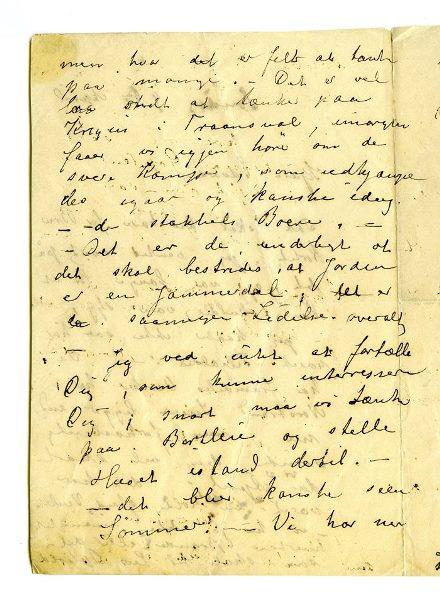 men hvor det er fælt at tænke
paa mange. – Det er vel
stridt at tænke paa
Krigen i Transval, imorgen
faaer vi igjen høre om de
svere Kampe, som udkjæmpe
des igaar og kanske idag.
– de stakkels Boere, –
– Det er da underligt at
det skal bestrides, at Jorden
er en Jammerdal, det er
saameget Lidelse overalt
– Jeg ved intet at fortælle
Dig, som kunne interessere
Dig; snart maa vi tænke
paa Bortleie og stelle
Huset istand dertil. –
– det blir kanske seen
Sommer. – Vi har nu